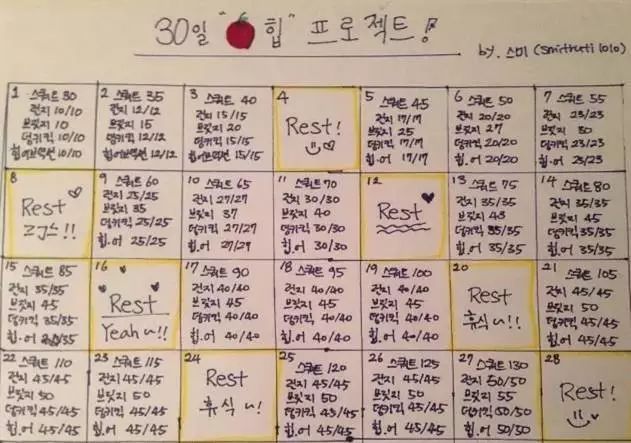 30일 " 힙" 프로젝트!
by. 스미 (Smithruti lolo)
1 스쿼트 30
런지 10/10
브릿지 10
덩키킥 10/10
힙어브덕션 10/10
2 스쿼트 35
런지 12/12
브릿지 15
덩키킥 12/12
힙어브덕션 12/12
3 스쿼트 40
런지 15/15
브릿지 20
덩키킥 15/15
힙어브덕션 15/15
4
Rest!
5 스쿼트 45
런지 17/17
브릿지 25
덩키킥 17/17
힙·어 17/17
6 스쿼트 50
런지 20/20
브릿지 27
덩키킥 20/20
힙·어 20/20
7 스쿼트 55
런지 23/23
브릿지 30
덩키킥 23/23
힙·어 23/23
8
Rest
굿!!
9 스쿼트 60
런지 25/25
브릿지 35
덩키킥 25/25
힙·어 25/25
10 스쿼트 65
런지 27/27
브릿지 37
덩키킥 27/27
힙·어 27/27
11 스쿼트 70
런지 30/30
브릿지 40
덩키킥 30/30
힙·어 30/30
12
Rest
13 스쿼트 75
런지 35/35
브릿지 43
덩키킥 35/35
힙·어 35/35
14 스쿼트 80
런지 35/35
브릿지 45
덩키킥 35/35
힙·어 35/35
15 스쿼트 85
런지 35/35
브릿지 45
덩키킥 35/35
힙·어 35/35
16
Rest
Yeah~!!
17 스쿼트 90
런지 40/40
브릿지 45
덩키킥 40/40
힙·어 40/40
18 스쿼트 95
런지 40/40
브릿지 45
덩키킥 40/40
힙·어 40/40
19 스쿼트 100
런지 40/40
브릿지 45
덩키킥 40/40
힙·어 40/40
20
Rest
휴식~!!
21 스쿼트 105
런지 45/45
브릿지 50
덩키킥 45/45
힙·어 45/45
22 스쿼트 110
런지 45/45
브릿지 50
덩키킥 45/45
힙·어 45/45
23 스쿼트 115
런지 45/45
브릿지 50
덩키킥 45/45
힙·어 45/45
24
Rest
휴식~!
25 스쿼트 120
런지 45/45
브릿지 50
덩키킥 45/45
힙·어 45/45
26 스쿼트 125
런지 45/45
브릿지 50
덩키킥 45/45
힙·어 45/45
27 스쿼트 130
런지 50/50
브릿지 55
덩키킥 50/50
힙·어 50/50
28
Rest!